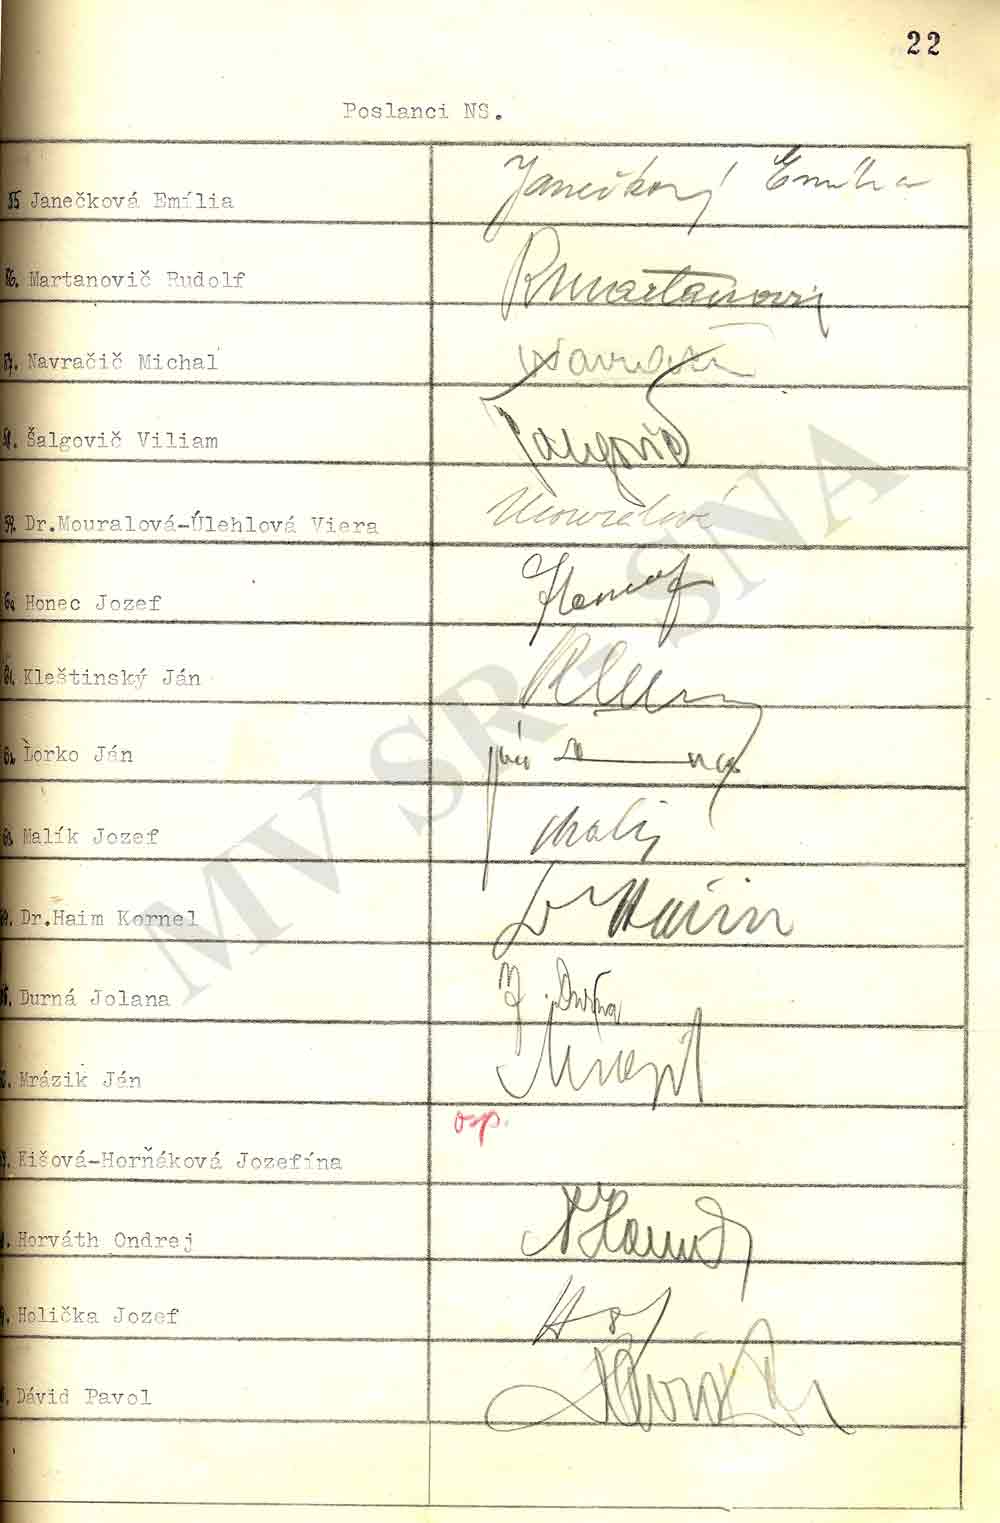 22
Poslanci NS.
55 Janečková Emília Janečková Emília
56. Martanovič Rudolf RMartanovič
57. Navračič Michal Navračič
58. Šalgovič Viliam Šalgovič
59. Dr.Mouralová-Úlehlová Viera Mouralová
60. Honec Jozef Honec
61. Kleštinský Ján
62. Lorko Ján
63. Malík Jozef Malík
Dr.Haim Kornel Dr Haim
Durná Jolana J. Durná
Mrázik Ján Mrázik
o.p.
Kišová-Horňáková Jozefína
Horváth Ondrej
Holička Jozef
Dávid Pavol
MV SR - SNA